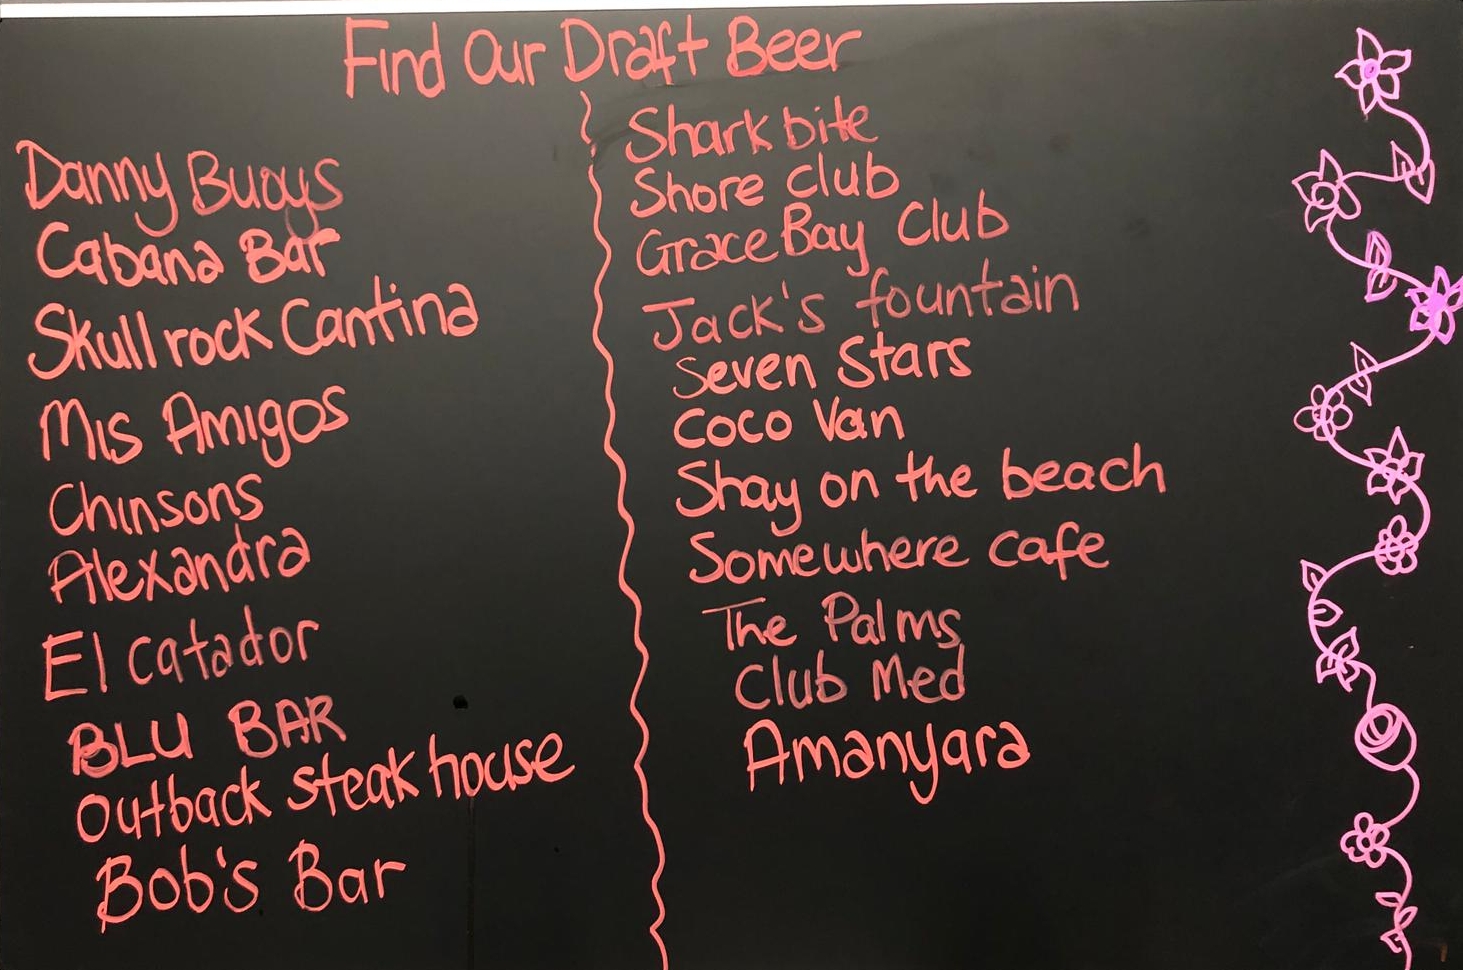 Find Our Draft Beer
Danny Buoys
Cabana Bar
Skull rock Cantina
Mis Amigos
Chinsons
Alexandra
El catador
BLU BAR
Outback steak house
Bob's Bar
Shark bite
Shore club
Grace Bay Club
Jack's fountain
Seven Stars
Coco Van
Shay on the beach
Somewhere cafe
The Palms
Club Med
Amanyara